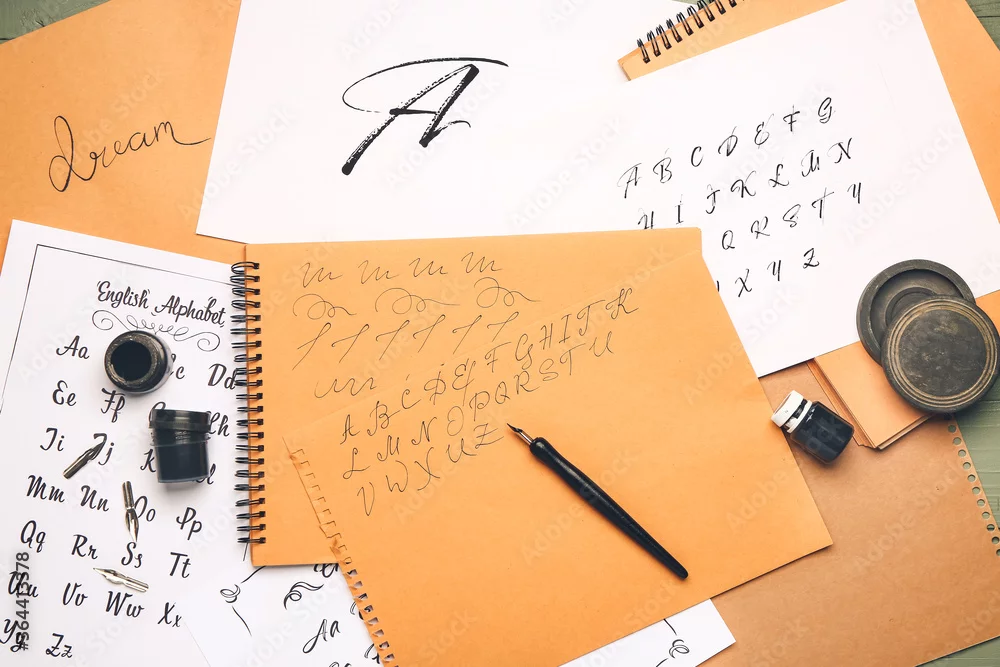 dream
A
A B C D E F G
H I J K L M N
Q R S T Y
X Y Z
English Alphabet
Aa Dd
Ee Ff
Ii Jj
Mm Nn Oo Pp
Qq Rr Ss Tt
Uu Vv Ww Xx
Zz
A B C D E F G H I J K
L M N O P Q R S T U
V W X U Z
Aa
Adobe Stock
#364415378